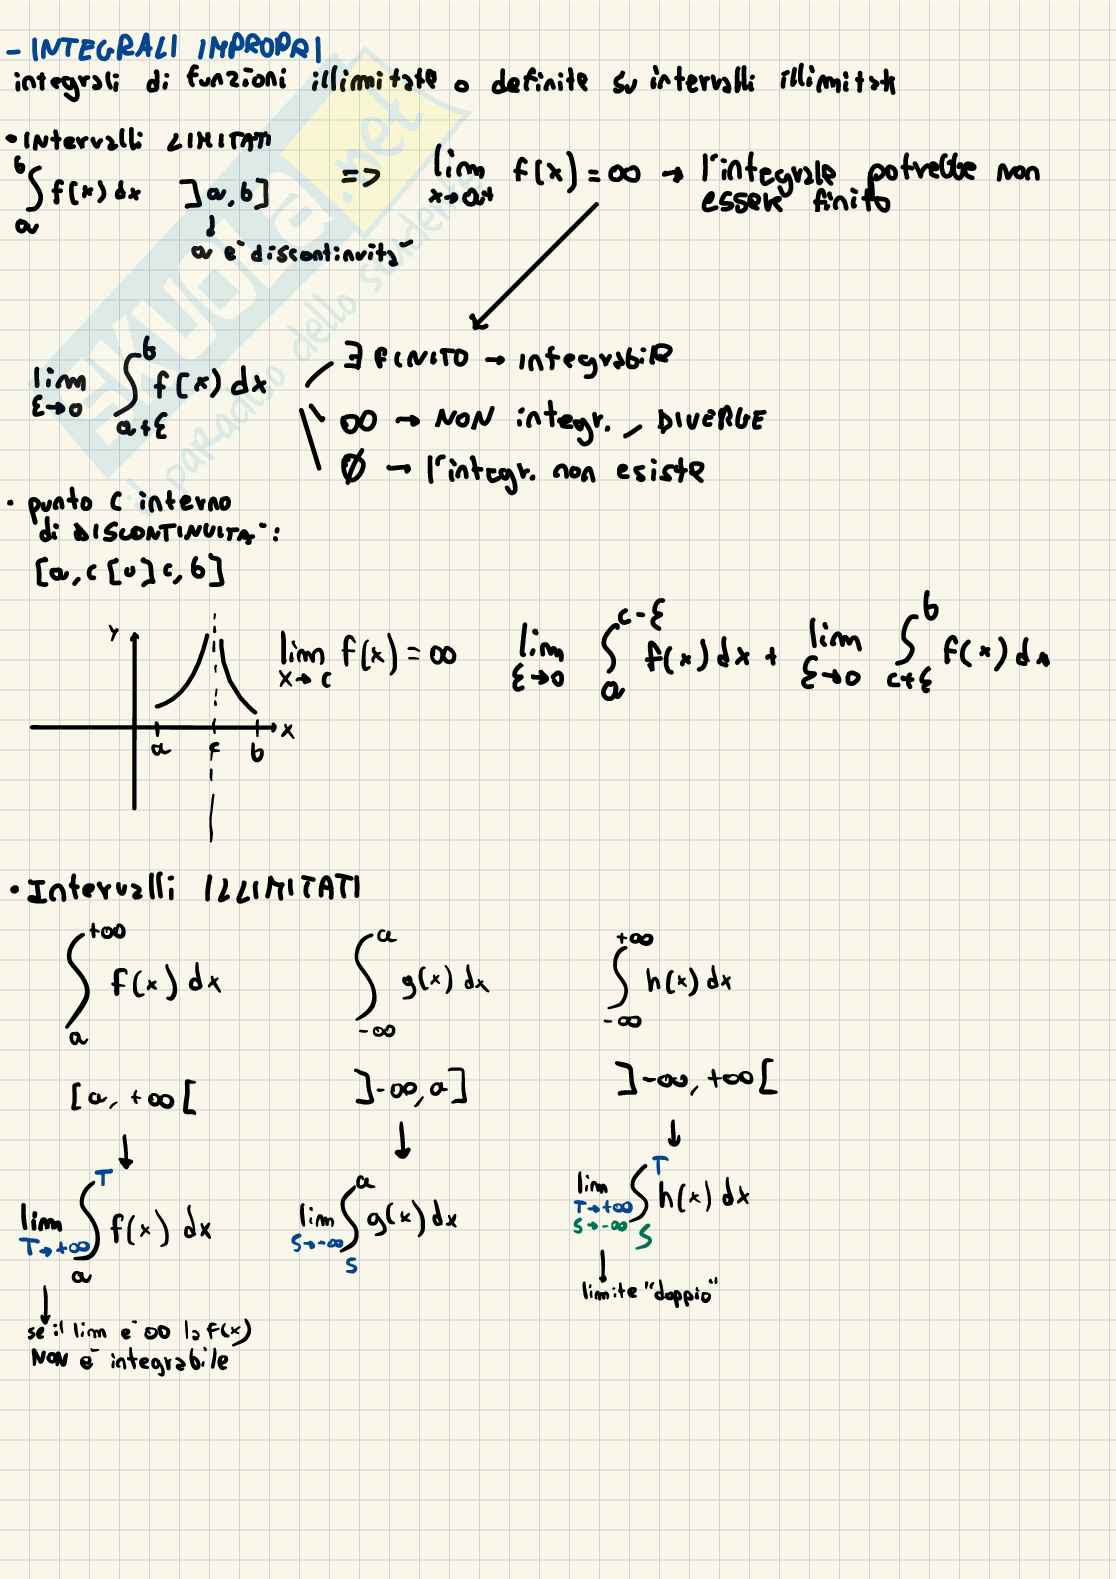 - INTEGRALI IMPROPRI
integrali di funzioni illimitate o definite su intervalli illimitati
• Intervalli LIMITATI
∫ₐᵇ f(x) dx ]a, b] => lim x→a⁺ f(x) = ∞ → l'integrale potrebbe non
esser finito
↓
a e' discontinuita'
lim ε→0 ∫ₐ₊εᵇ f(x) dx
∃ FINITO → integrabile
∞ → NON integr., DIVERGE
∅ → l'integr. non esiste
• punto c interno
di DISCONTINUITA':
[a, c[ ∪ ]c, b]
y
a c b x
lim x→c f(x) = ∞
lim ε→0 ∫ₐ^(c-ε) f(x) dx + lim ε→0 ∫_(c+ε)^b f(x) dx
• Intervalli ILLIMITATI
∫ₐ^(+∞) f(x) dx ∫_(-∞)^a g(x) dx ∫_(-∞)^(+∞) h(x) dx
[a, +∞[ ]-∞, a] ]-∞, +∞[
↓ ↓ ↓
lim T→+∞ ∫ₐ^T f(x) dx lim S→-∞ ∫_S^a g(x) dx lim T→+∞ S→-∞ ∫_S^T h(x) dx
↓
limite "doppio"
↓
se il lim e' ∞ la f(x)
NON e' integrabile
SKUOLA.net
il paradiso dello studente